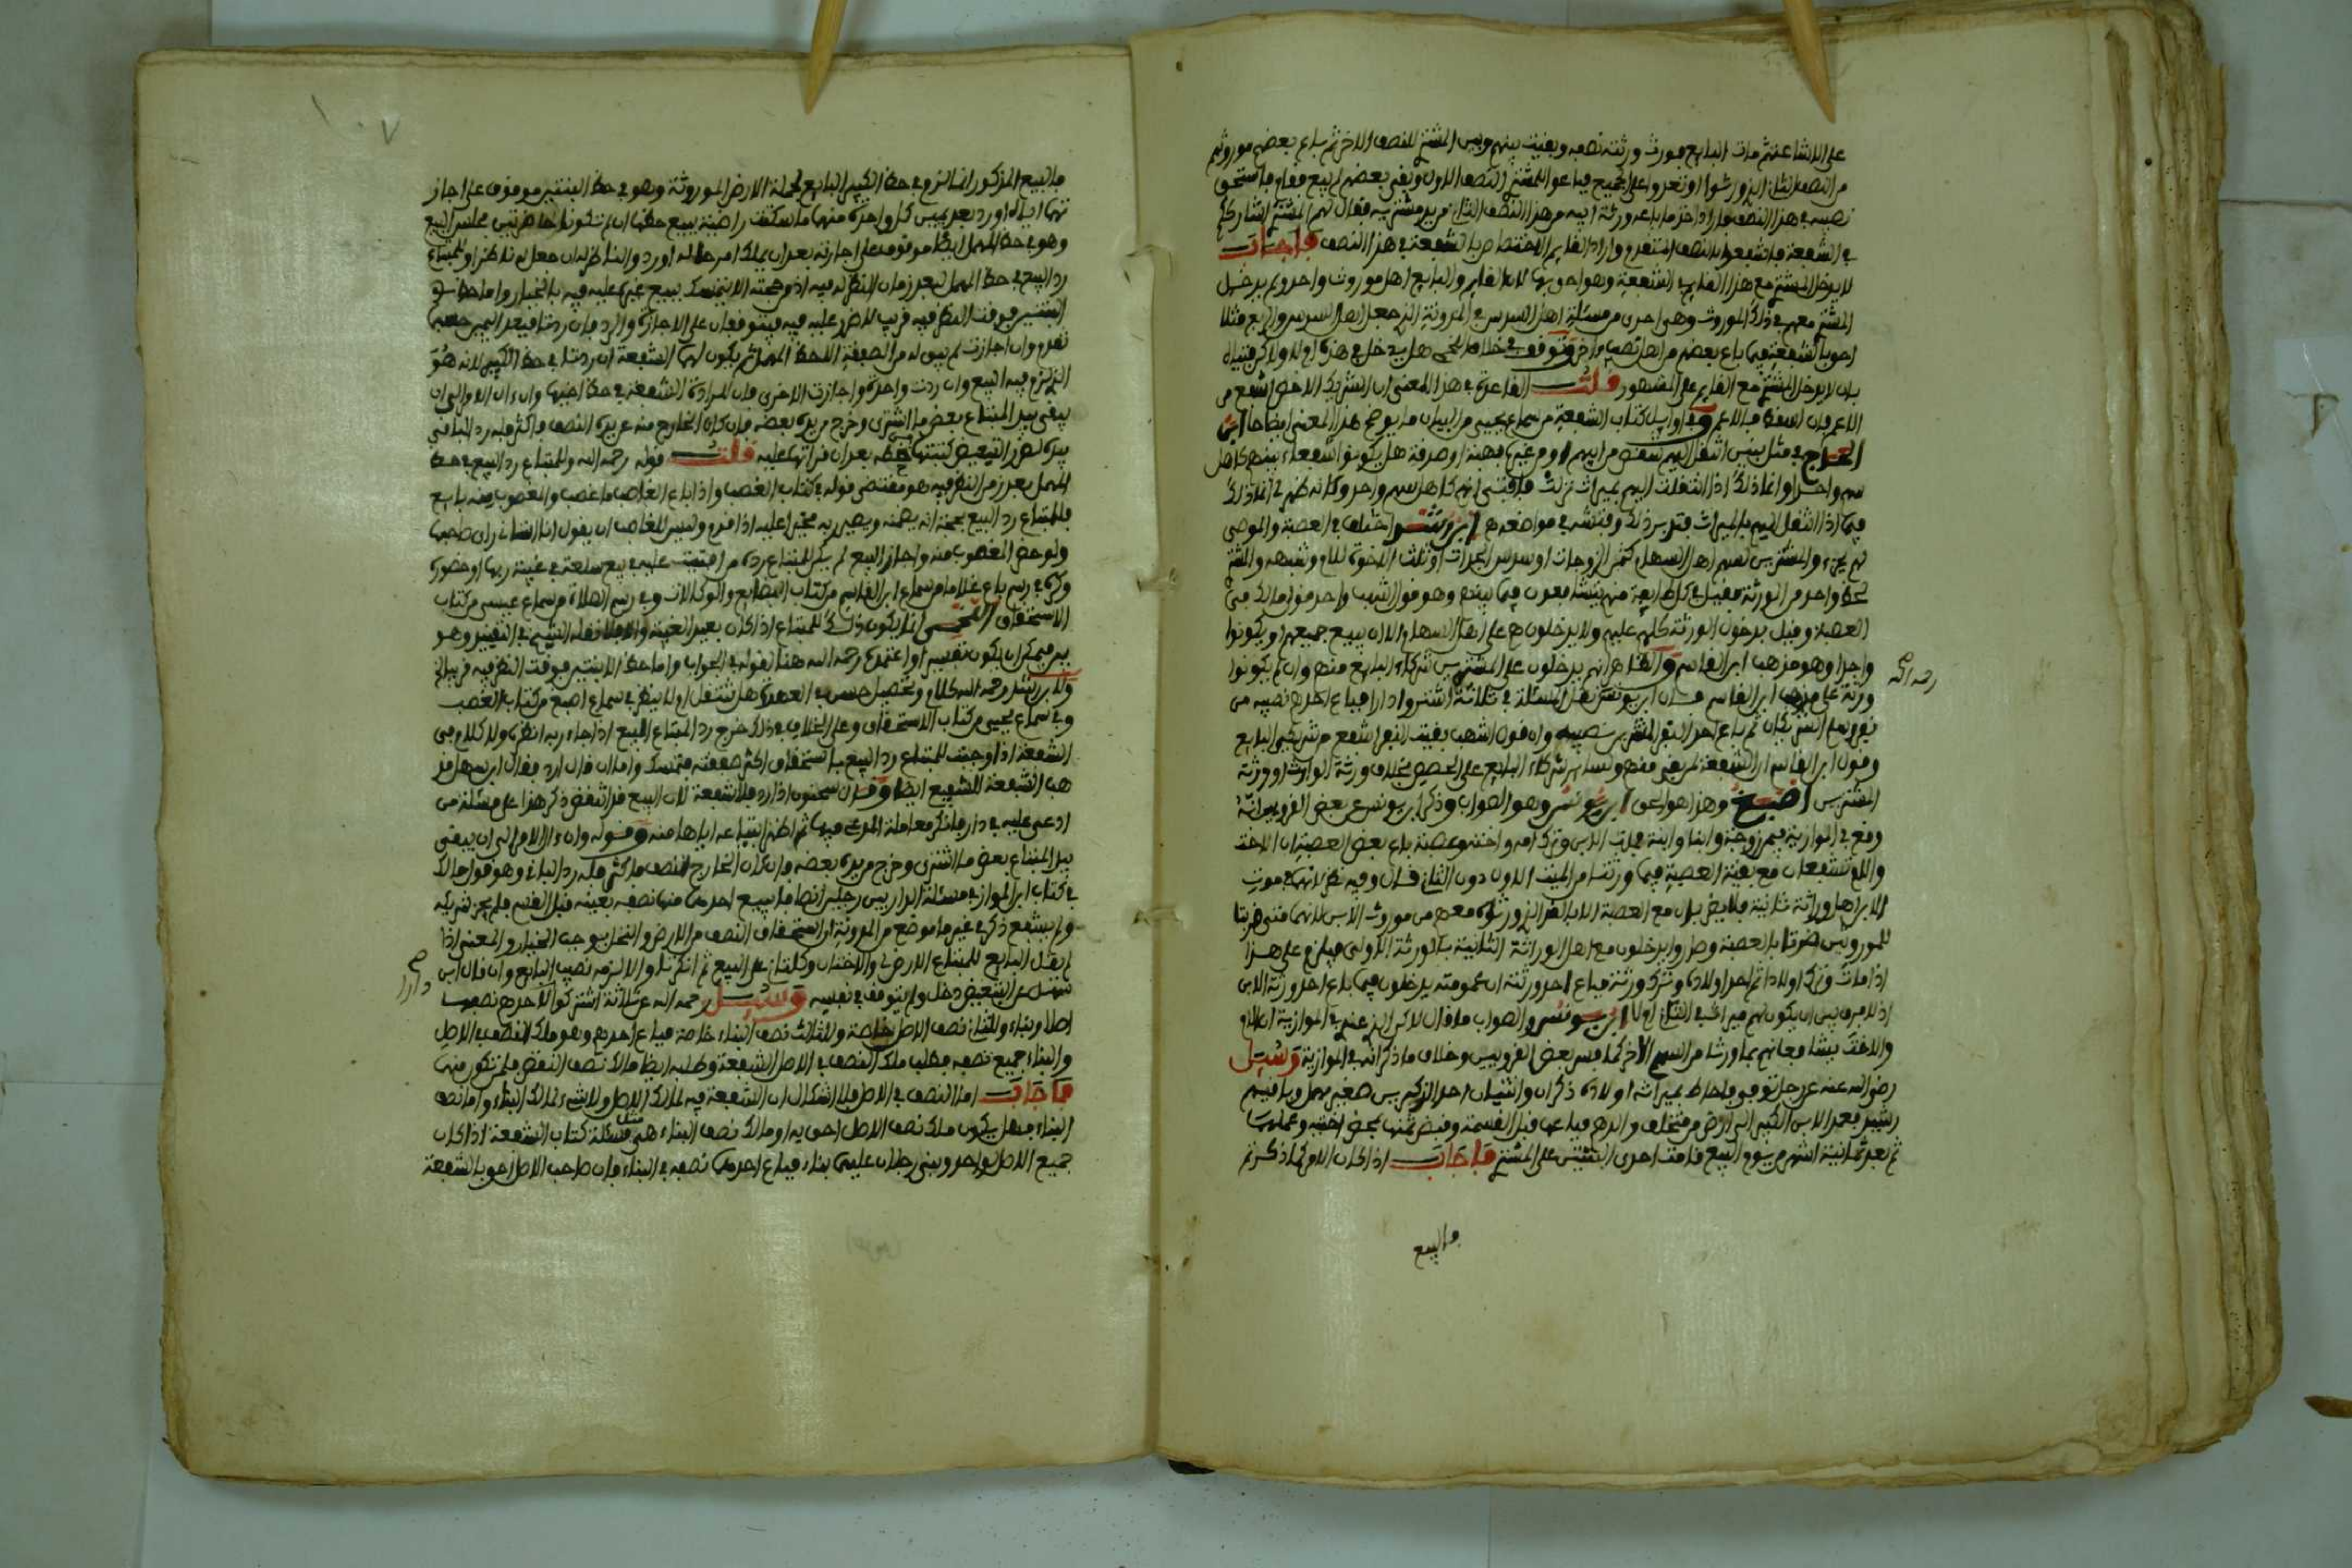 على الاشاعة ثم مات البايع فورث ورثته نصفه وبقيت بينهم وبين المشتري للنصف الاخر ثم باع بعضهم موروثهم
من النصف الثاني الذي ورثوا او تعدوا على الجميع فباعوا المشتري النصف الاول وبقي بعضهم لم يبع فقام فاستحق
نصيبه في هذا النصف فاراد اخذ ما باعه ورثة ابيه من هذا النصف الثاني من يد مشتريه فقال لهم المشتري اشارككم
في الشفعة فاشفعوا بالنصف المتقدم واراد القايم الاختصاص بالشفعة في هذا النصف فاجاب
لا يدخل المشتري مع هذا القايم في الشفعة وهو احق بها لان القايم والبايع اهل موروث واحد ولم يدخل
المشتري معهم في ذلك الموروث وهي احرى من مسئلة اهل السدس في المدونة الذي جعل اهل السدس والربع مثلا
احق بالشفعة فيما باع بعضهم من اهل نصيب اخر وتوقف في خلافه هل يدخل في هذه ام لا ولاكن فتياه
بان لا يدخل المشتري مع القايم على المشهور قلت القاعدة في هذا المعنى ان الشريك الاخص اشفع من
الاعم فان اسقط فالاعم وفي اوايل كتاب الشفعة من سماع يحيى من البيان ما يوضح هذا المعنى ايضاحا ابن
الحاج في مثل بنين انتقل اليهم شقص من ابيهم او من غيره بهبة او صدقة هل يكونوا شفعاء بينهم كاهل
سهم واحد او انما ذلك اذا انتقلت اليهم بميراث نزلت فافتى انهم كاهل سهم واحد وكانه ظهر لي انما ذلك
فيما اذا انتقل اليهم بالميراث فتدبر ذلك وفتشه في مواضعه ابن رشد اختلف في العصبة والموصى
لهم بجزء والمشترين لسهم اهل السهام كثمن الزوجات او سدس الجدات او ثلث الاخوة للام وشبهه والمشتري
لحظ واحد من الورثة فقيل في كل طايفة منهم يتشافعون فيما بينهم وهو قول اشهب واحد قولي مالك في
العصبة وقيل يدخلون الورثة كلهم عليهم ولا يدخلون هم على اهل السهام الا ان يبيع جميعهم او يكونوا
واحدا وهو مذهب ابن القاسم والظاهر انهم يدخلون على المشترين شركاء البايع منهم وان لم يكونوا
رحمه الله
ورثة على مذهب ابن القاسم قال ابن يونس نقل المسئلة في ثلاثة اشتروا دارا فباع احدهم نصيبه من
نفر وسلم الشريكان ثم باع احد النفر المشترين نصيبه وان قول اشهب بقية النفر اشفع من شريكي البايع
وقول ابن القاسم ان الشفعة لمن بقي منهم ولساير شركاء البايع على الحصص بخلاف ورثة الوارث او ورثة
المشترين اصبغ وهذا هو الحق ابن يونس وهو الصواب وذكر ابن يونس عن بعض القرويين انه
وقع في الموازية فيمن زوجة وابنا وابنة فمات الابن وترك امه واخته وعصبة باع بعض العصبة ان الاخت
والام تشفعان مع بقية العصبة فيما ورثتا من الميت الاول دون الثاني قال وفيه نظر لانهما في موت
الابن اهل وراثة ثانية فلا يضربان مع العصبة الا بالقدر الذي ورثوه معهم من موروث الابن لانهما متى ضربتا
للموروثين ضرتا بالعصبة وصاروا يدخلون مع اهل الوراثة الثانية بالورثة الاولى فيلزم على هذا
اذا مات وترك اولادا ثم احد اولاده وترك ورثة فباع احد ورثته ان عمومته يدخلون فيما باع احد ورثة الابن
اذ لا فرق بين ان يكون لهم ميراث في الثاني او لا ابن يونس والصواب ما قال لاكن الذي عندي في الموازية ان الام
والاخت يتشافعانهم بما ورثتا من السهم الاخر كما فسر بعض القرويين وخلاف ما ذكر انه في الموازية وسئل
رضي الله عنه عن رجل توفي فاحاط بميراثه اولاده ذكران وانثيان احد الذكرين صغير مهمل وباقيهم
رشيد فعمد الابن الكبير الى ارض من مخلف والدهم فباعها قبل القسمة وقبض ثمنها بمحضر اختيه وعملهما
ثم بعد ثمانية اشهر من يوم البيع قامت احدى البنتين على المشتري فاجاب اذا كان الامر كما ذكرتم
فالبيع
فالبيع المذكور انما لزم في حظ الكبير البايع لجملة الارض الموروثة وهو في حظ البنتين موقوف على اجاز
تهما اياه او رد بعد يمين كل واحدة منهما ما سكتت راضية ببيع حظها ان تكونا حاضرتين مجلس البيع
وهو في حظ المهمل ايضا موقوف على اجازته بعد ان يملك امر حاله او رد والناظر له ان جعل له ناظر او للمبتاع
رد البيع في حظ المهمل لبعد زمان النظر له فيه اذ من حجته الا يتمسك ببيع غيره عليه فيه بالخيار واما حظ
البنتين فوقت النظر فيه قريب لا ضرر عليه فيه فيتوقفان على الاجازة والرد فان ردتا فبعد اليمين حسبما
تقدم وان اجازت لم يبق له من الصفقة الا حظ المهمل ثم يكون لهما الشفعة ان ردتا في حظ الكبير لانه هو
الذي لزم فيه البيع وان ردت واحدة واجازت الاخرى فان المرادة الشفعة في حظ اخيها وان ءال الامر الى ان
يبقى بيد المبتاع بعض ما اشترى وخرج من يده بعضه فان كان الخارج منه عن يده النصف فاكثر فله رد الباقي
بيده لضرر التبعيض كتبتها بحضه بعد ان قراتها عليه قلت قوله رحمه الله وللمبتاع رد البيع في حظ
المهمل بعد زمن النظر فيه هو مقتضى قوله في كتاب الغصب واذا باع الغاصب ما غصب والمغصوب منه بايع
فللمبتاع رد البيع بحجة انه يضمنه ويصير ربه مخيرا عليه اذا قدم وليس للغاصب ان يقول انا استاني راي صاحبها
ولو حضر المغصوب منه واجاز البيع لم يكن للمبتاع رده من افتيت عليه في بيع سلعة في غيبة ربها او حضوره
وكذا في رسم باع غلاما من سماع ابن القاسم من كتاب البضايع والوكالات وفي رسم الصلاة من سماع عيسى من كتاب
الاستحقاق اللخمي انما يكون ذلك للمبتاع اذا كان بعيد الغيبة والا فلا نقله الشيخ في التقييد وهو
يد فيمكن ان يكون تفسير او اعتمده رحمه الله هنا لقوله في الجواب واما حظ الابنتين فوقت النظر فيه قريب الخ
ولابن رشد رحمه الله كلام وتحصيل حسن في العهدة هل تنتقل او لا ينظر في سماع اصبغ من كتاب الغصب
وفي سماع يحيى من كتاب الاستحقاق وعلى الخلاف في ذلك خرج رد المبتاع البيع اذا جاء ربه انظره وله كلام في
الشفعة اذا وجبت للمبتاع رد البيع باستحقاق اكثر صفقته فتمسك واما ان قال ارد فقال ابن سهل مذ
هب الشفعة للشفيع ايضا وقال سحنون اذا رد فلا شفعة لان البيع قد انتقض ذكر هذا على مسئلة من
ادعي عليه في دار فانكر معاملة المدعي فيها ثم اظهر ابتياعه اياها منه وقوله وان ءال الامر الى ان يبقى
بيد المبتاع بعض ما اشترى وخرج من يده بعضه فان كان الخارج النصف فاكثر فله رد الباقي وهو قول مالك
في كتاب ابن المواز في مسئلة الدار بين رجلين انصافا يبيع احدهما منها نصفه بعينه قبل القسم فلم يجز شريكه
ولم يشفع ذكره في غير ما موضع من المدونة ان استحقاق النصف من الارض والنخل يوجب الخيار والمعنى اذا
لم يقل البايع للمبتاع الارض لي ولاختان وكلتاني على البيع ثم انكرتا والا لزمه نصيب البايع وان قال ابن
دارا
سهل عن التبعيض دخل ولم يتوقف في نفسه وسئل رحمه الله عن ثلاثة اشتركوا لاحدهم نصفها
اصلا وبناء وللثاني نصف الاصل خاصة وللثالث نصف البناء خاصة فباع احدهم وهو ملك النصف في الاصل
والبناء جميع نصفه فطلب ملك النصف في الاصل الشفعة وطلبه ايضا مالك نصف النقض فلمن تكون منهما
فاجاب اما النصف في الاصل فلا اشكال ان الشفعة فيه لمالك الاصل ولا شيء لمالك البناء واما نصف
البناء فهل يكون ملك نصف الاصل احق به او مالك نصف البناء هي مثل مسئلة كتاب الشفعة اذا كان
جميع الاصل لواحد وبنى رجلان عليهما بناء فباع احدهما نصفه في البناء فان صاحب الاصل احق بالشفعة